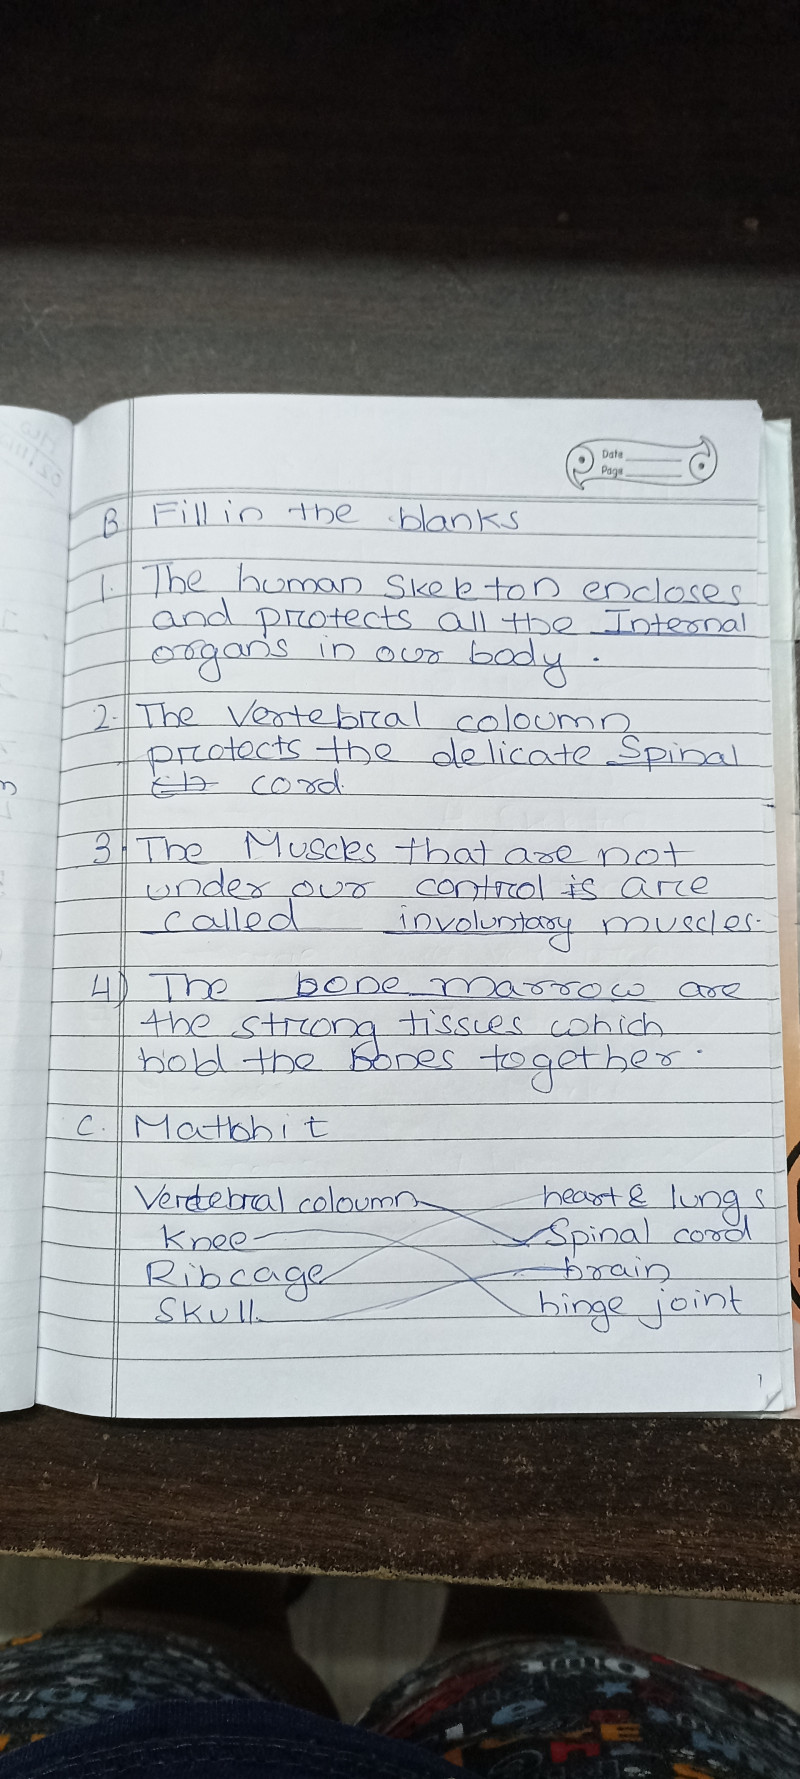 Date
Page
B Fill in the blanks
1. The human Skeleton encloses
and protects all the Internal
organs in our body.
2. The Vertebral coloumn
protects the delicate Spinal
cord.
3. The Muscles that are not
under our control is are
called involuntary muscles.
4) The bone marrow are
the strong tissues which
hold the bones together.
C. Match it
Vertebral coloumn heart & lungs
Knee Spinal cord
Ribcage brain
Skull hinge joint